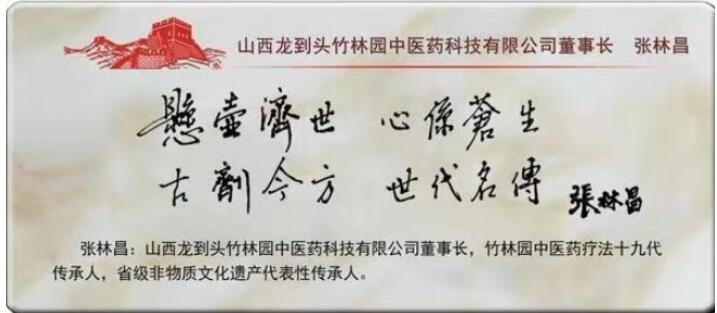 山西龙到头竹林园中医药科技有限公司董事长　张林昌
懸壺濟世　心係蒼生
古劑今方　世代名傳　張林昌
张林昌：山西龙到头竹林园中医药科技有限公司董事长，竹林园中医药疗法十九代
传承人，省级非物质文化遗产代表性传承人。